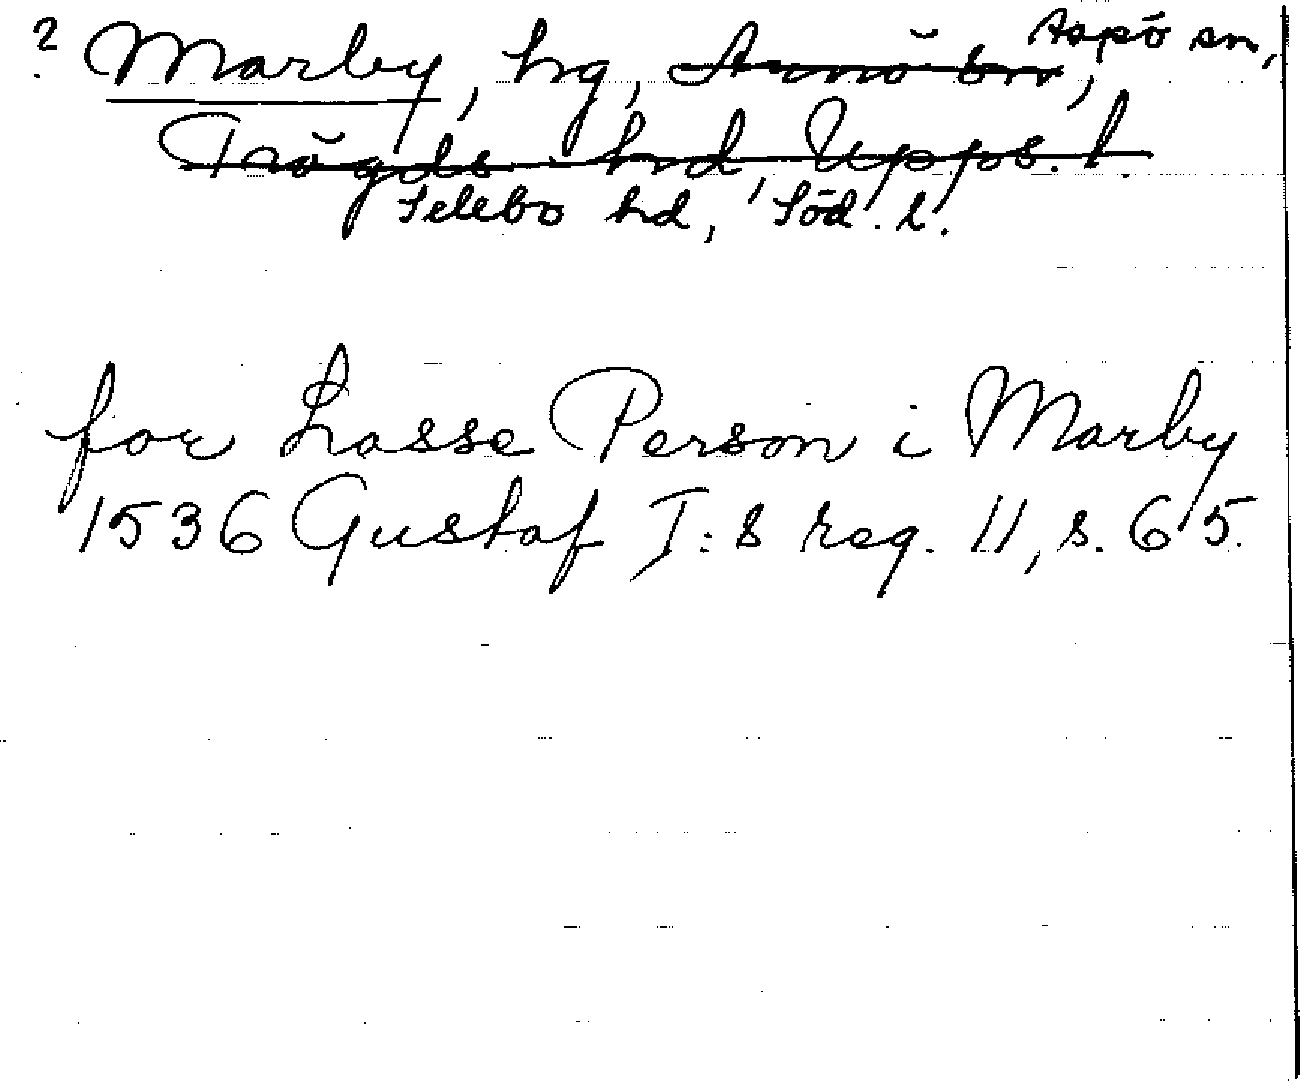 ? Marby, hg, Arnö sn, Aspö sn,
Trögds hd, Upps. l.
Selebo hd, Söd. l.
for Lasse Person i Marby
1536 Gustaf I:s reg. 11, s. 65.